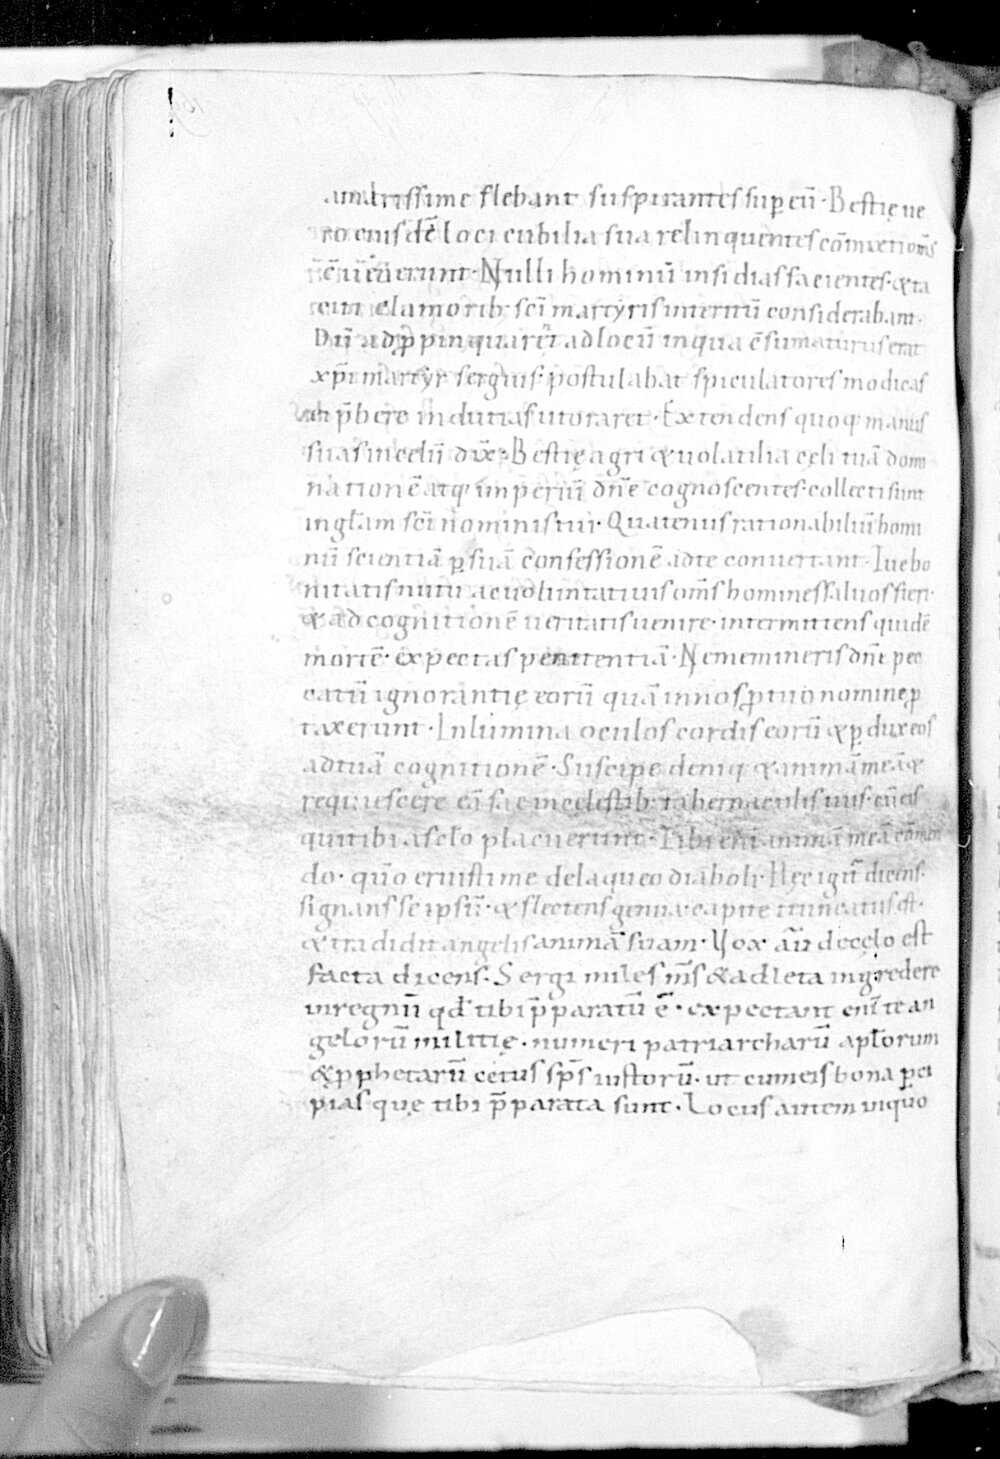 amarissime flebant suspirantes sup eũ · Bestię ue
ro eiusdẽ loci cubilia sua relinquentes
uenerunt · Nulli hominũ insidias facientes · &ta
citi clamorib; sc̃i martyris interitũ considerabant ·
Dũ adp̱pinquaret ad locũ in quo c̃sumaturus erat
xp̃i martyr sergius · postulabat spiculatores modicas
ei p̃bere indutias ut oraret · Extendens quoq; manus
suas in celũ dix̃ · Bestię agri & uolatilia cęli tuã domi
nationẽ atq; imperiũ dñe cognoscentes · collecti sunt
in gl̃am sc̃i nominis tui · Quatenus rationabiliũ homi
nũ scientiã p̱ suã confessionẽ ad te conuertant · Tue bo
nitatis nutu ac uoluntati uis om̃s homines saluos fieri ·
& ad cognitionẽ ueritatis uenire · intermittens quidẽ
mortẽ · expectas penitentiã · Ne memineris dñe pec
catũ ignorantię eorũ quã in nos p̱ tuo nomine p̱
taxerunt · Inlumina oculos cordis eorũ & p̱dux eos
ad tuã cognitionẽ · Suscipe deniq; & animã meã &
requiescere eã fac in celestib; tabernaculis tuis · cũ eis
qui tibi a sc̃lo placuerunt · Tibi enĩ animã meã cõmen
do · quõ eruisti me de laqueo diaboli · Hęc igit̃ dicens ·
signans se ipsũ · & flectens genua · capite truncatus est ·
& tradidit angelis animã suam · Vox aũ de cęlo est
facta dicens · Sergi miles m̃s & adleta ingredere
in regnũ qđ tibi p̃paratũ ẽ · expectant enĩ te an
gelorũ militię · numeri patriarcharũ apl̃orum
& p̱phetarũ cetus sp̃s iustorũ · ut cum eis bona p̱ci
pias quę tibi p̃parata sunt · Locus autem in quo